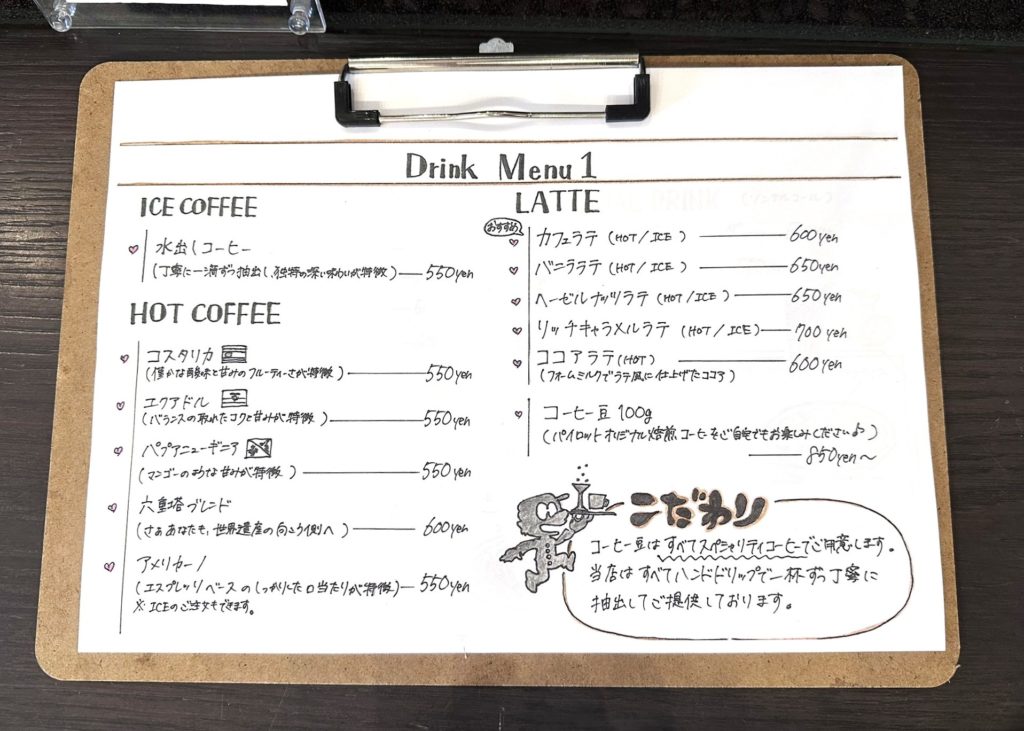 Drink Menu 1
ICE COFFEE
水出しコーヒー
(丁寧に一滴ずつ抽出し、独特の深い味わいが特徴) 550yen
HOT COFFEE
コスタリカ
(僅かな酸味と甘みのフルーティーさが特徴) 550yen
エクアドル
(バランスの取れたコクと甘みが特徴) 550yen
パプアニューギニア
(マンゴーのような甘みが特徴) 550yen
六重塔ブレンド
(さぁあなたも、世界遺産の向こう側へ) 600yen
アメリカーノ
(エスプレッソベースのしっかりした口当たりが特徴) 550yen
※ICEのご注文もできます。
LATTE
おすすめ
カフェラテ (HOT/ICE) 600yen
バニララテ (HOT/ICE) 650yen
ヘーゼルナッツラテ (HOT/ICE) 650yen
リッチキャラメルラテ (HOT/ICE) 700yen
ココアラテ(HOT) 600yen
(フォームミルクでラテ風に仕上げたココア)
コーヒー豆 100g
(パイロットオリジナル焙煎コーヒーをご自宅でもお楽しみください♪)
850yen～
こだわり
コーヒー豆はすべてスペシャリティコーヒーでご用意します。
当店はすべてハンドドリップで一杯ずつ丁寧に
抽出してご提供しております。